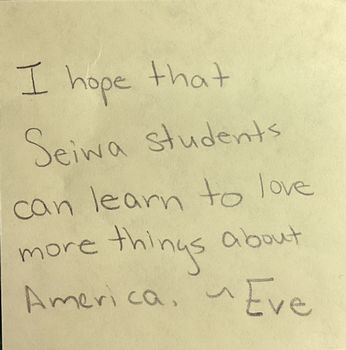 I hope that
Seiwa students
can learn to love
more things about
America. ~ Eve